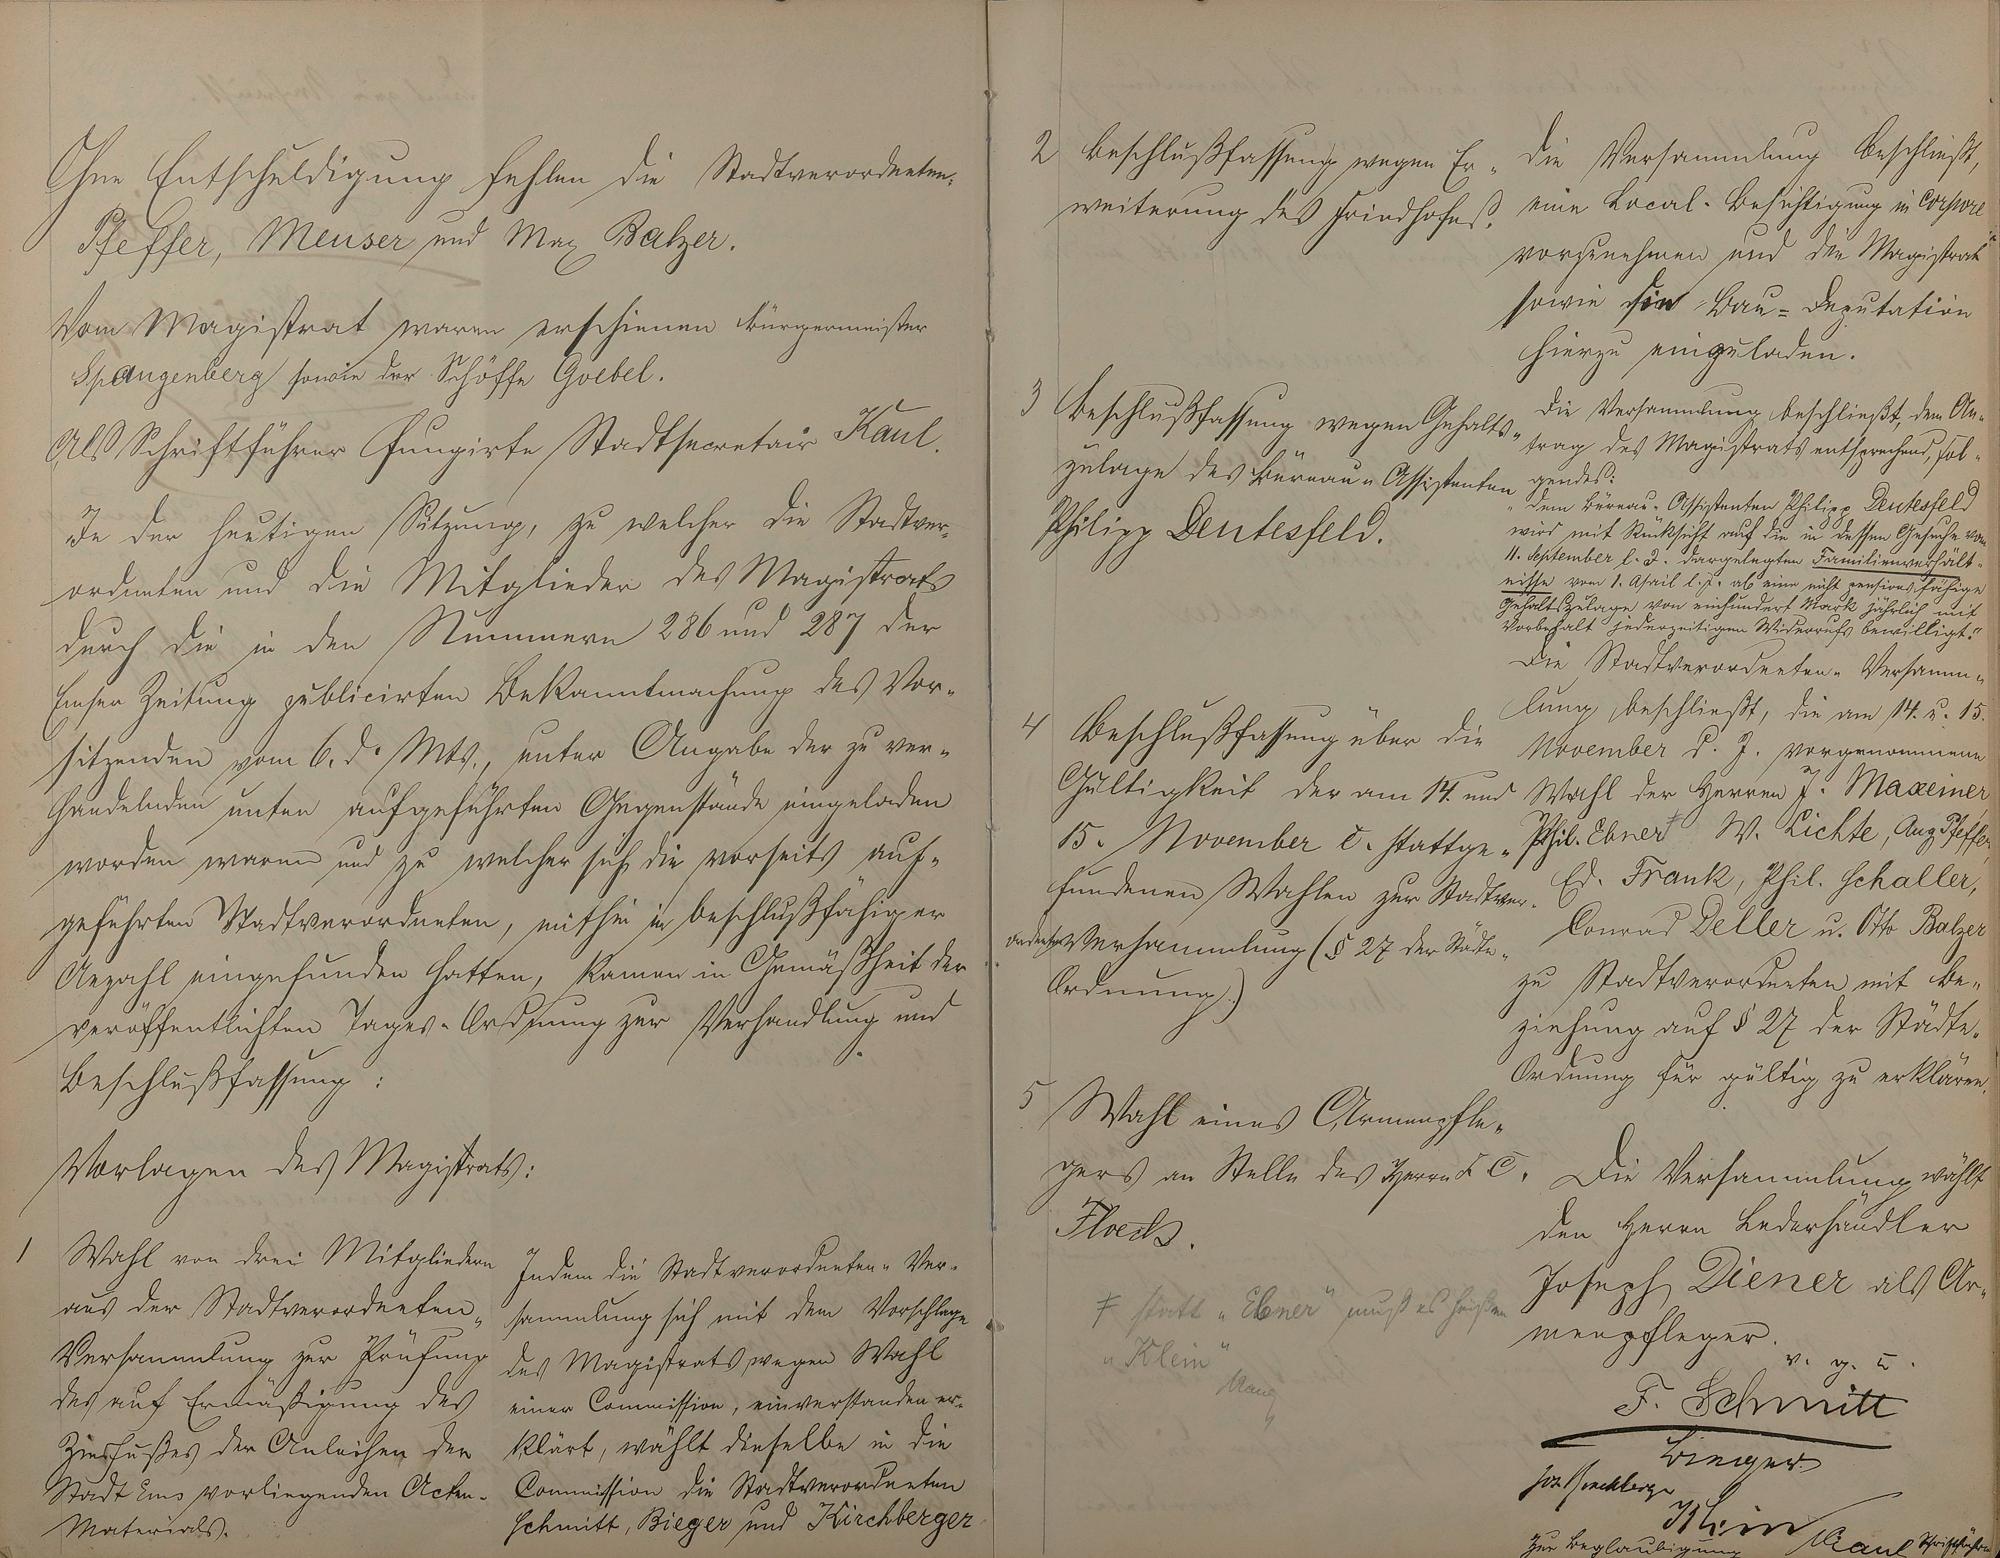 Ohne Entschuldigung fehlen die Stadtverordneten:
Pfeffer, Meuser und Max Balzer.
Vom Magistrat waren erschienen Bürgermeister
Spangenberg sowie der Schöffe Goebel.
Als Schriftführer fungirte Stadtsecretair Kaul.
In der heutigen Sitzung, zu welcher die Stadtver-
ordneten und die Mitglieder des Magistrats
durch die in den Nummern 286 und 287 der
Emser Zeitung publicirten Bekanntmachung des Vor-
sitzenden vom 6. d. Mts., unter Angabe der zu ver-
handelnden unten aufgeführten Gegenstände eingeladen
worden waren und zu welcher sich die vorseits auf-
geführten Stadtverordneten, mithin in beschlußfähiger
Anzahl eingefunden hatten, kamen in Gemäßheit der
veröffentlichten Tages-Ordnung zur Verhandlung und
Beschlußfassung:
Vorlagen des Magistrats:
1 Wahl von drei Mitgliedern
aus der Stadtverordneten-
Versammlung zur Prüfung
des auf Ermäßigung des
Zinsfußes der Anleihen der
Stadt Ems vorliegenden Acten-
Materials.
Indem die Stadtverordneten-Ver-
sammlung sich mit dem Vorschlage
des Magistrats wegen Wahl
einer Commission, einverstanden er-
klärt, wählt dieselbe in die
Commission die Stadtverordneten
Schmitt, Bieger und Kirchberger
2 Beschlußfassung wegen Er-
weiterung des Friedhofes.
Die Versammlung beschließt,
eine Local-Besichtigung in corpore
vorzunehmen und den Magistrat
sowie die Bau-Deputation
hierzu einzuladen.
3 Beschlußfassung wegen Gehalts-
zulage des Büreau-Assistenten
Philipp Deutesfeld.
Die Versammlung beschließt, dem An-
trag des Magistrats entsprechend, fol-
gendes:
"dem Büreau-Assistenten Philipp Deutesfeld
wird mit Rücksicht auf die in dessen Gesuche vom
11. September l. J. dargelegten Familienverhält-
nisse vom 1. April l. J. ab eine nicht pensionsfähige
Gehaltszulage von einhundert Mark jährlich mit
Vorbehalt jederzeitigen Widerrufs bewilligt."
4 Beschlußfassung über die
Gültigkeit der am 14. und
15. November c. stattge-
fundenen Wahlen zur Stadtver-
ordneten Versammlung (§ 27 der Städte-
Ordnung)
Die Stadtverordneten-Versamm-
lung beschließt, die am 14. u. 15.
November d. J. vorgenommene
Wahl der Herren J. Maxeiner
Phil. Ebner ‡ W. Lichte, Aug Pfeffer,
Ed. Frank, Phil. Schaller,
Conrad Deller u. Otto Balzer
zu Stadtverordneten mit Be-
ziehung auf § 27 der Städte-
Ordnung für gültig zu erklären.
5 Wahl eines Armenpfle-
gers an Stelle des Herrn F. C.
Flöck.
Die Versammlung wählt
den Herrn Lederhändler
Joseph Diener als Ar-
menpfleger.
‡ statt "Ebner" muß es heißen
"Klein"
Kaul
v. g. u.
F. Schmitt
Bieger
Klein
Zur Beglaubigung
Kaul Schriftführer